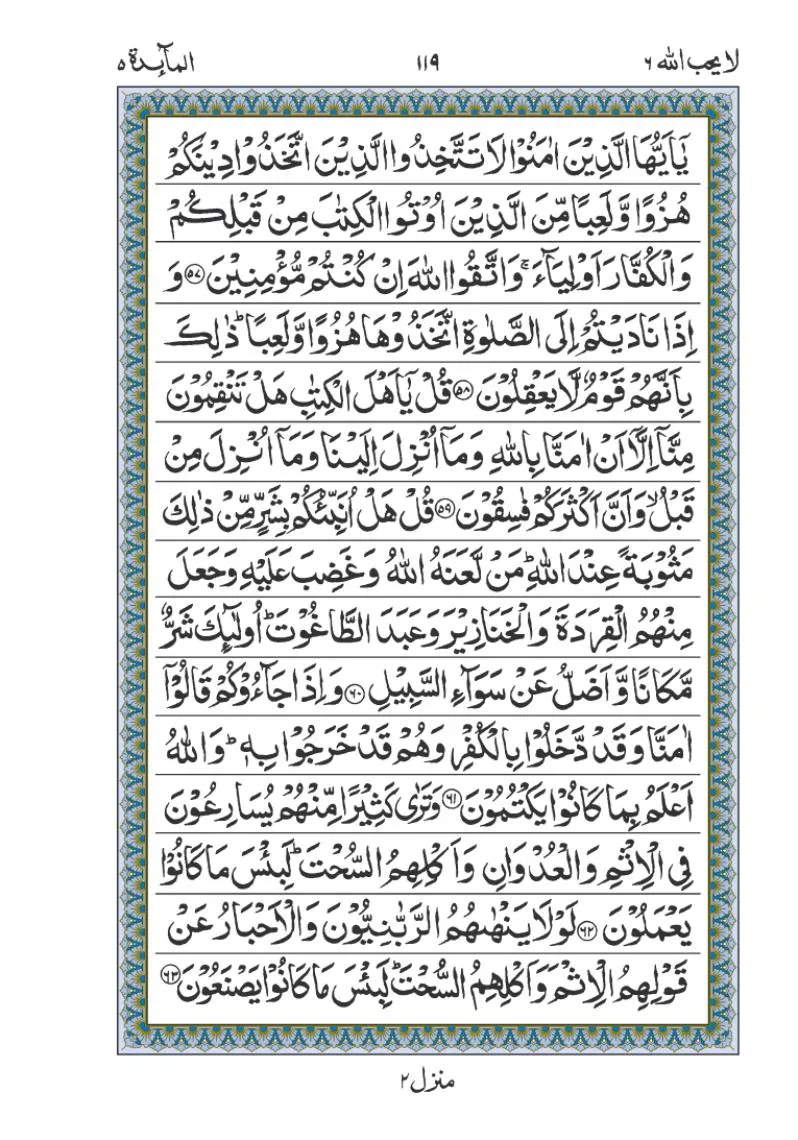 لا يحب الله ٦
١١٩
المآئدة ٥
يٰۤاَيُّهَا الَّذِيْنَ اٰمَنُوْا لَا تَتَّخِذُوا الَّذِيْنَ اتَّخَذُوْا دِيْنَكُمْ
هُزُوًا وَّلَعِبًا مِّنَ الَّذِيْنَ اُوْتُوا الْكِتٰبَ مِنْ قَبْلِكُمْ
وَالْكُفَّارَ اَوْلِيَآءَ ۚ وَاتَّقُوا اللّٰهَ اِنْ كُنْتُمْ مُّؤْمِنِيْنَ ۝٥٧ وَ
اِذَا نَادَيْتُمْ اِلَى الصَّلٰوةِ اتَّخَذُوْهَا هُزُوًا وَّلَعِبًا ؕ ذٰلِكَ
بِاَنَّهُمْ قَوْمٌ لَّا يَعْقِلُوْنَ ۝٥٨ قُلْ يٰۤاَهْلَ الْكِتٰبِ هَلْ تَنْقِمُوْنَ
مِنَّاۤ اِلَّاۤ اَنْ اٰمَنَّا بِاللّٰهِ وَمَاۤ اُنْزِلَ اِلَيْنَا وَمَاۤ اُنْزِلَ مِنْ
قَبْلُ ۙ وَاَنَّ اَكْثَرَكُمْ فٰسِقُوْنَ ۝٥٩ قُلْ هَلْ اُنَبِّئُكُمْ بِشَرٍّ مِّنْ ذٰلِكَ
مَثُوْبَةً عِنْدَ اللّٰهِ ؕ مَنْ لَّعَنَهُ اللّٰهُ وَغَضِبَ عَلَيْهِ وَجَعَلَ
مِنْهُمُ الْقِرَدَةَ وَالْخَنَازِيْرَ وَعَبَدَ الطَّاغُوْتَ ؕ اُولٰٓئِكَ شَرٌّ
مَّكَانًا وَّاَضَلُّ عَنْ سَوَآءِ السَّبِيْلِ ۝٦٠ وَاِذَا جَآءُوْكُمْ قَالُوْۤا
اٰمَنَّا وَقَدْ دَّخَلُوْا بِالْكُفْرِ وَهُمْ قَدْ خَرَجُوْا بِهٖ ؕ وَاللّٰهُ
اَعْلَمُ بِمَا كَانُوْا يَكْتُمُوْنَ ۝٦١ وَتَرٰى كَثِيْرًا مِّنْهُمْ يُسَارِعُوْنَ
فِى الْاِثْمِ وَالْعُدْوَانِ وَاَكْلِهِمُ السُّحْتَ ؕ لَبِئْسَ مَا كَانُوْا
يَعْمَلُوْنَ ۝٦٢ لَوْلَا يَنْهٰىهُمُ الرَّبّٰنِيُّوْنَ وَالْاَحْبَارُ عَنْ
قَوْلِهِمُ الْاِثْمَ وَاَكْلِهِمُ السُّحْتَ ؕ لَبِئْسَ مَا كَانُوْا يَصْنَعُوْنَ ۝٦٣
منزل ٢